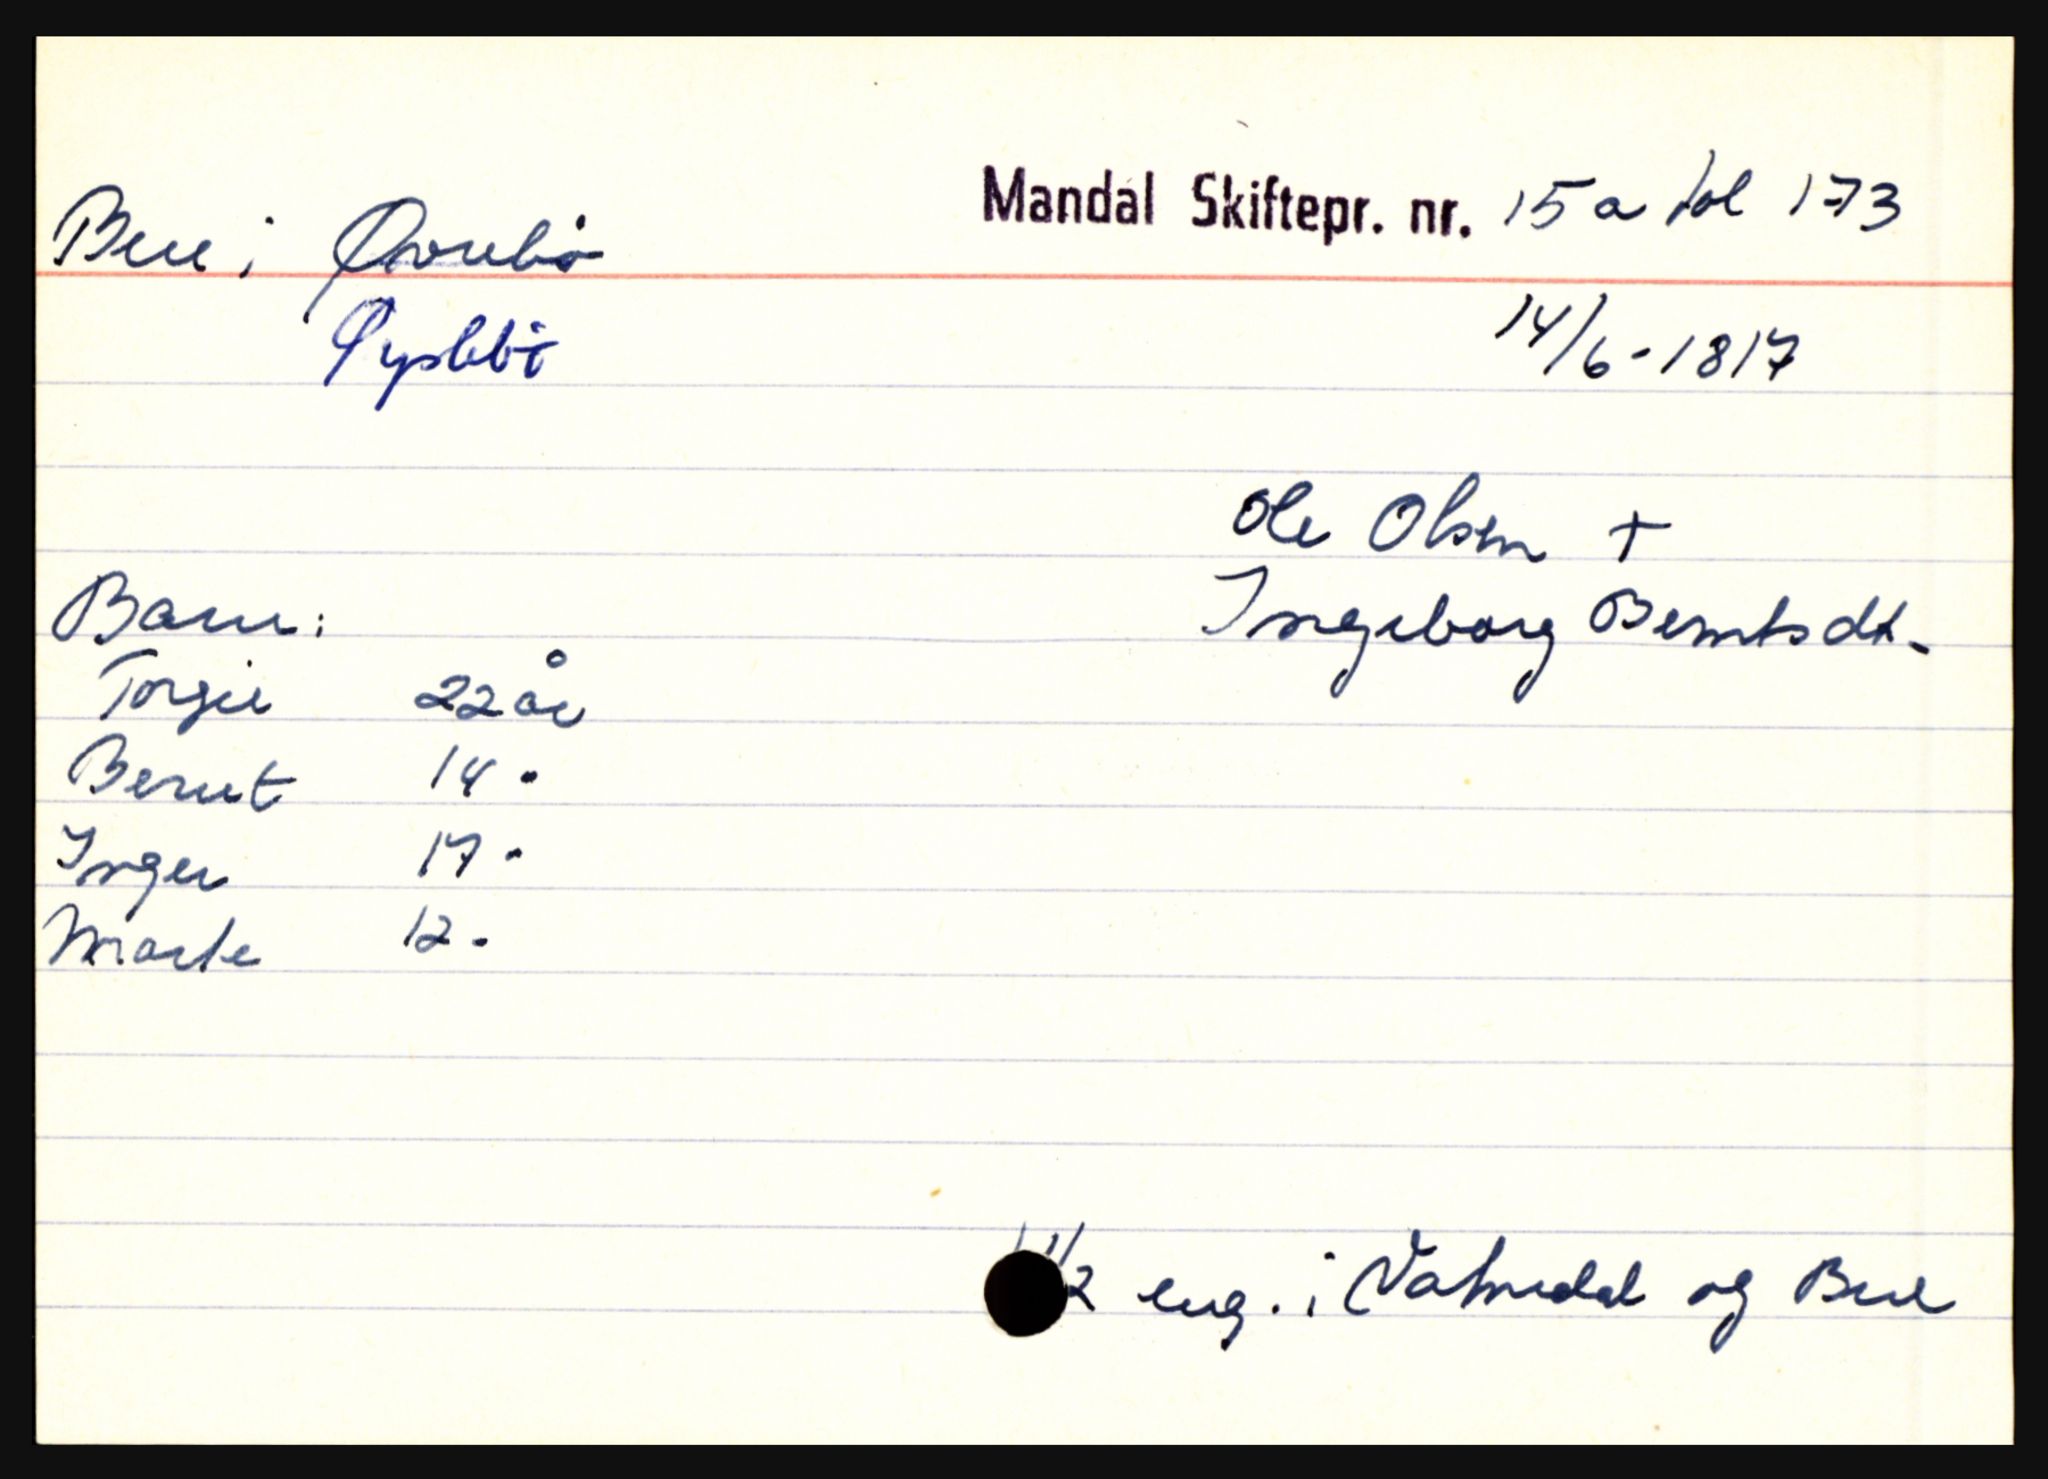 Mandal Skiftepr. nr. 15a fol 173
Bue i Øvrebø
Øyslebø
14/6-1817
Ole Olsen +
Ingeborg Berntsdt.
Barn:
Torgie 22 år
Bernt 14 "
Inger 17 "
Marte 12 "
1/2 eng. i Vatnedal og Bue